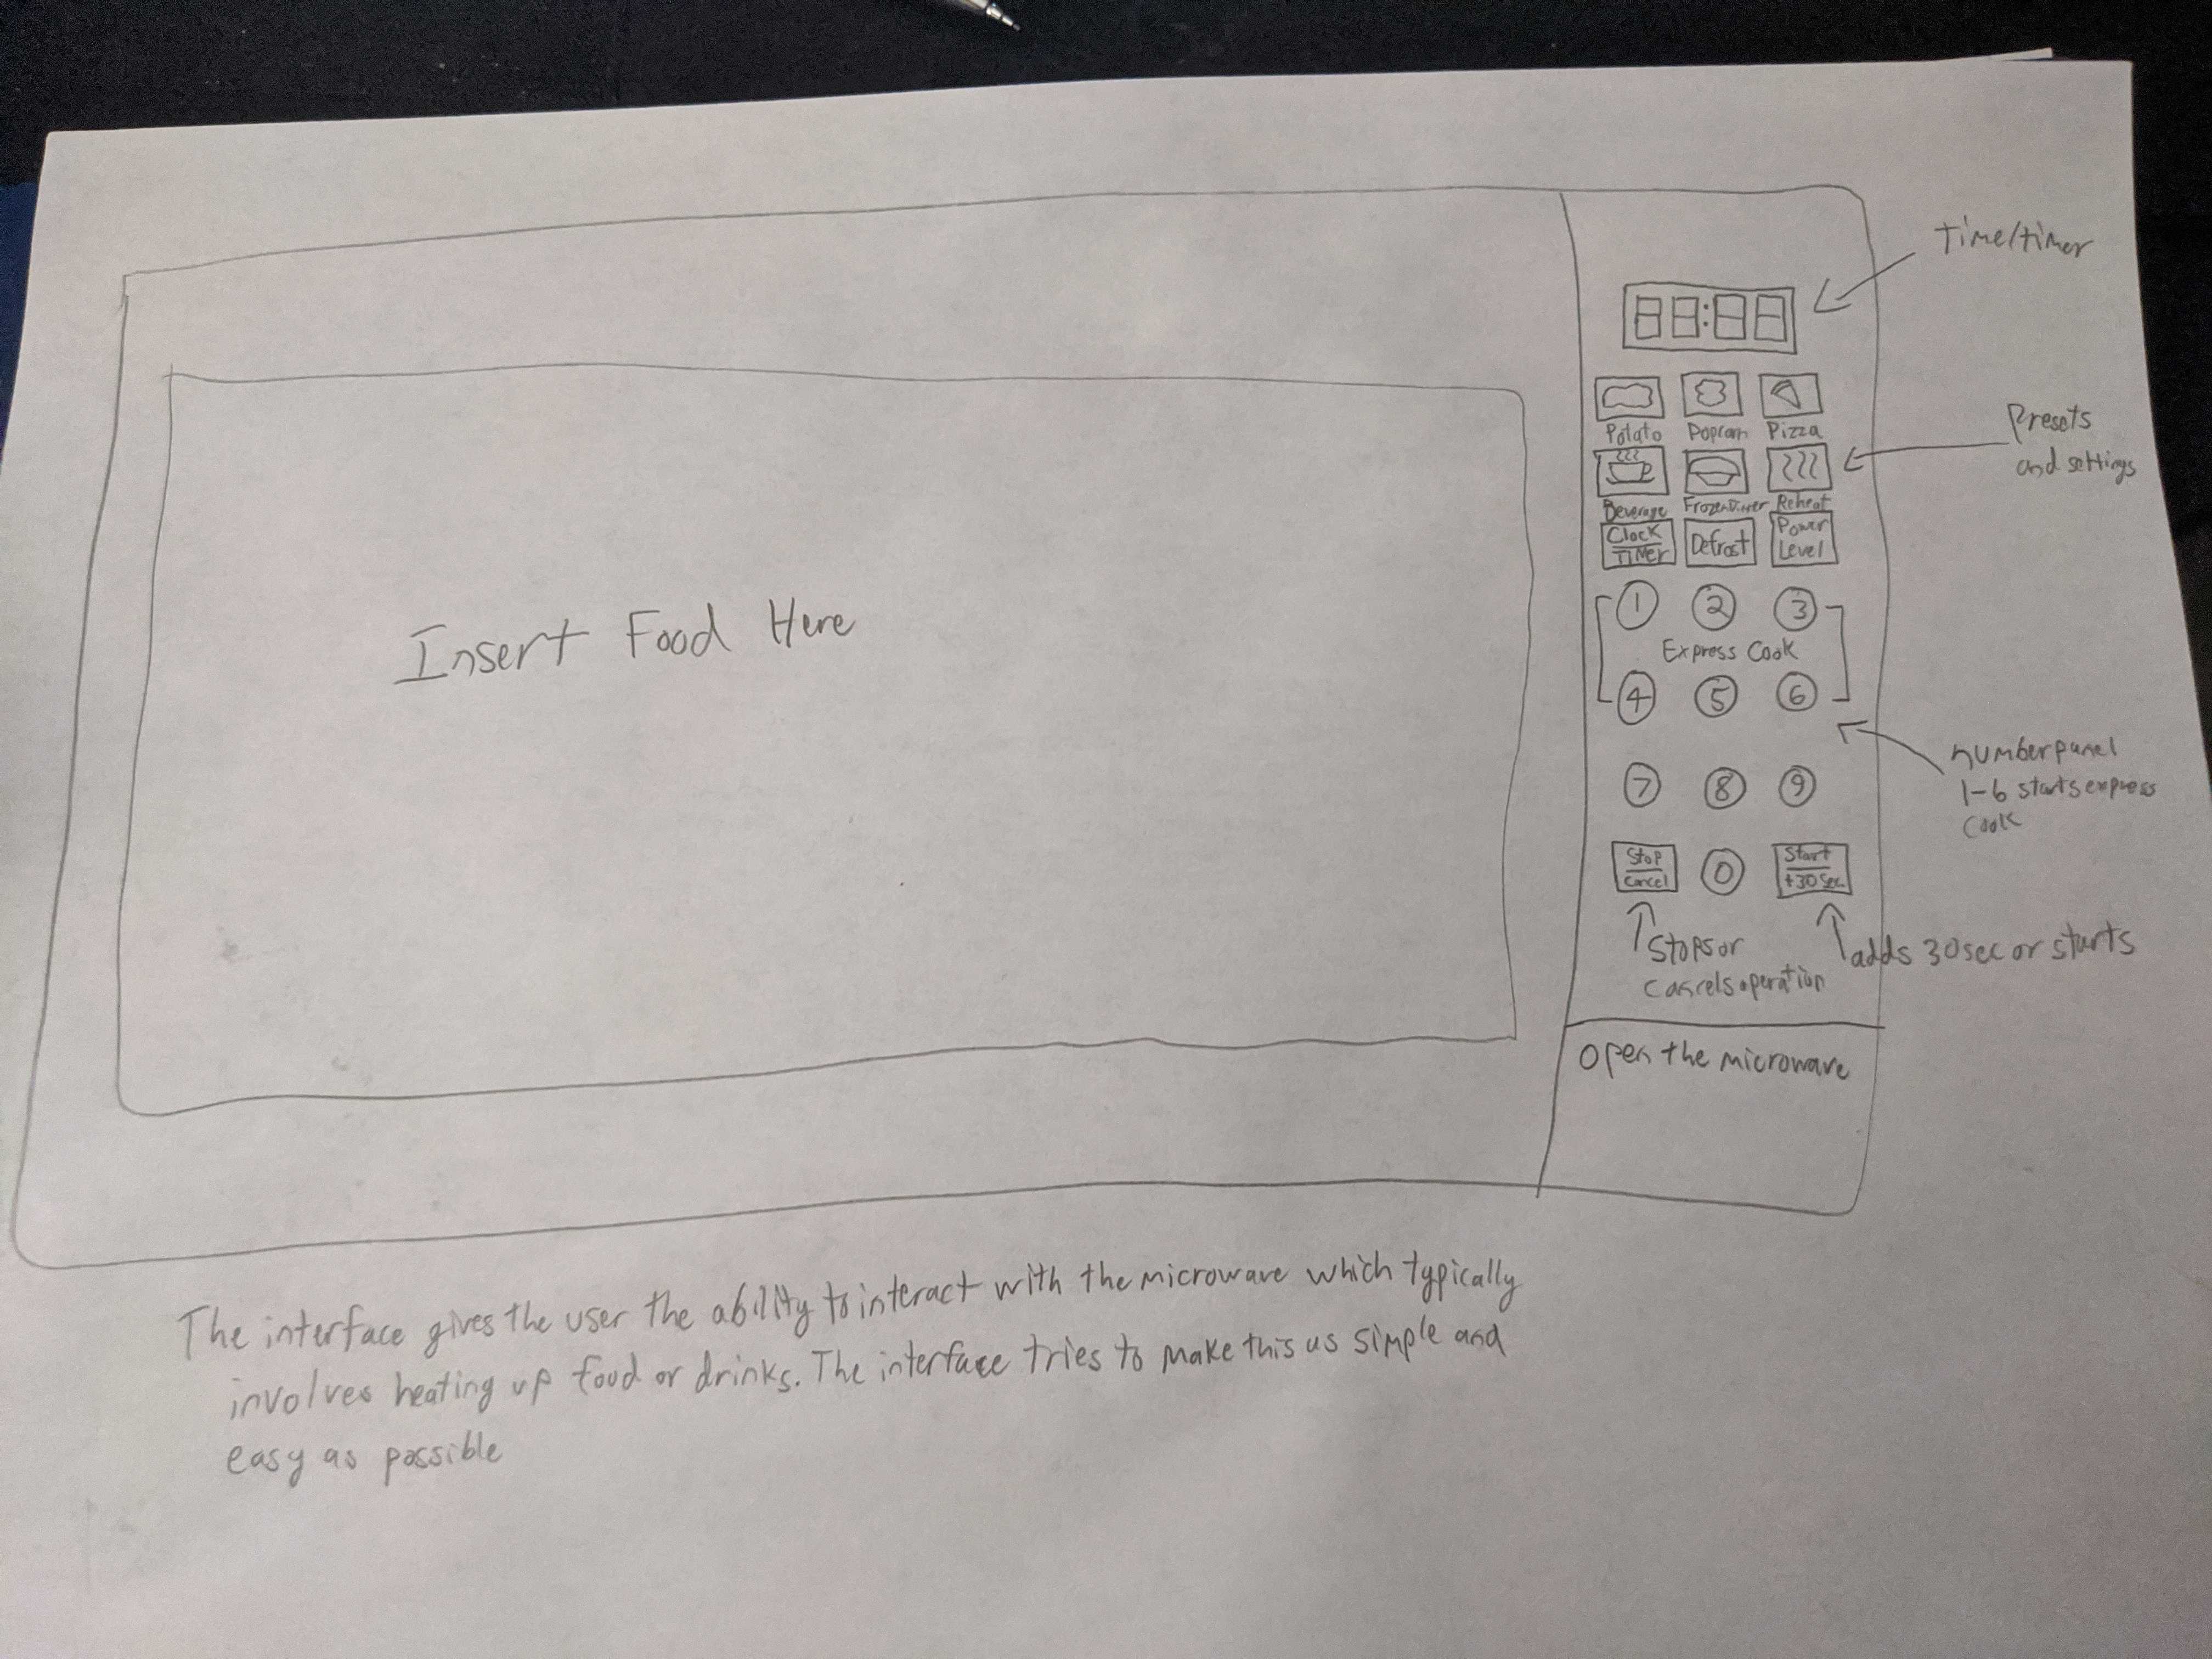 Time/timer
88:88
Potato Popcorn Pizza
Presets
and settings
Beverage Frozen Dinner Reheat
Clock
Timer
Defrost
Power
Level
1 2 3
Express Cook
4 5 6
Insert Food Here
number panel
1-6 starts express
cook
7 8 9
Stop
Cancel
0
Start
+30 Sec
Stops or
cancels operation
adds 30sec or starts
Open the microwave
The interface gives the user the ability to interact with the microwave which typically
involves heating up food or drinks. The interface tries to make this as simple and
easy as possible